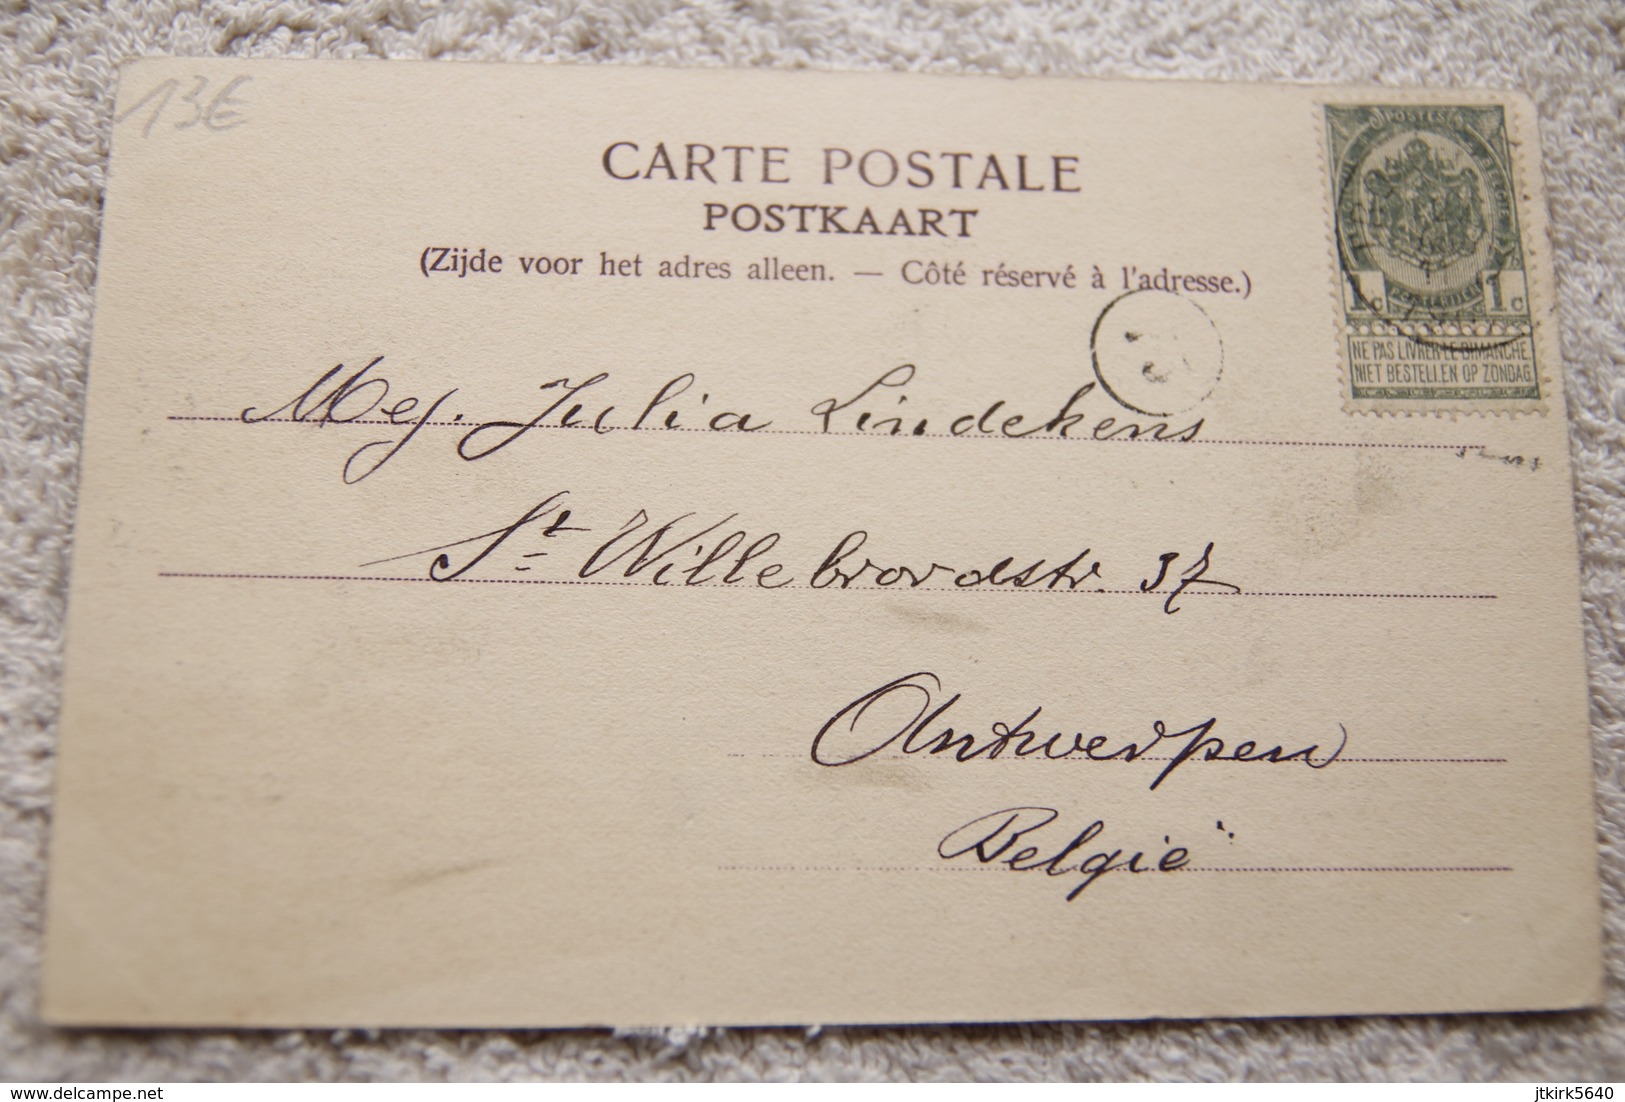 13€
CARTE POSTALE
POSTKAART
(Zijde voor het adres alleen. — Côté réservé à l'adresse.)
POSTES
1c 1c
NE PAS LIVRER LE DIMANCHE.
NIET BESTELLEN OP ZONDAG
Mej. Julia Lindekens
St Willebrordstr. 37
Antwerpen
België
delcampe.net
jtkirk5640